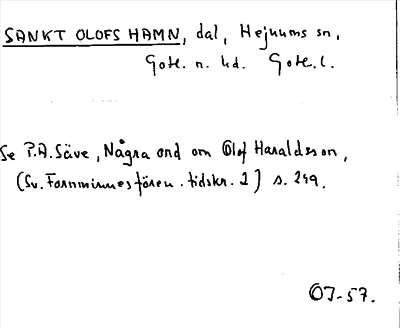 SANKT OLOFS HAMN, dal, Hejnums sn,
Gotl. n. hd. Gotl. l.
Se P.A. Säve, Några ord om Olof Haraldsson,
(Sv. Fornminnesfören. tidskr. 2) s. 249.
OJ-57.